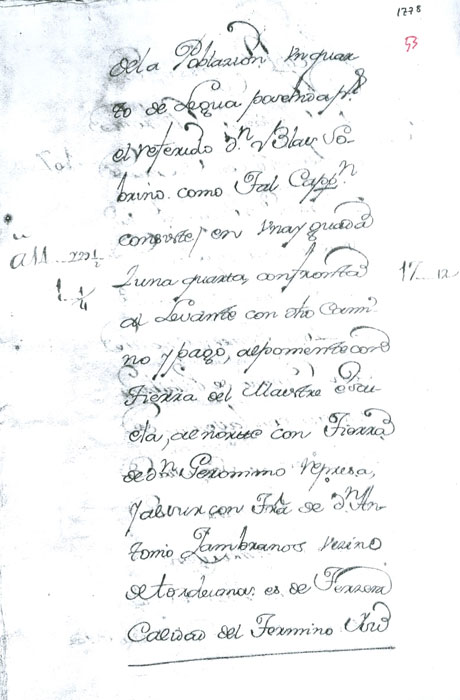 1778
53
dela Poblazion un quar
to de Legua posehida pr.
el referido Dn. Blas So
brino como tal Cappn.
consiste, en una yguada
a 11
1 1/4
17 12
y una quarta, confronta
al Levante con dho Cami
no y pago, al poniente con
tierra del Maestre Escu
ela, al norte con Tierra
de Dn. Geronimo Represa,
y al sur con Tra. de Dn. An
tonio Zambranos vezino
de tordecianos es de Terzera
Calidad del Termino